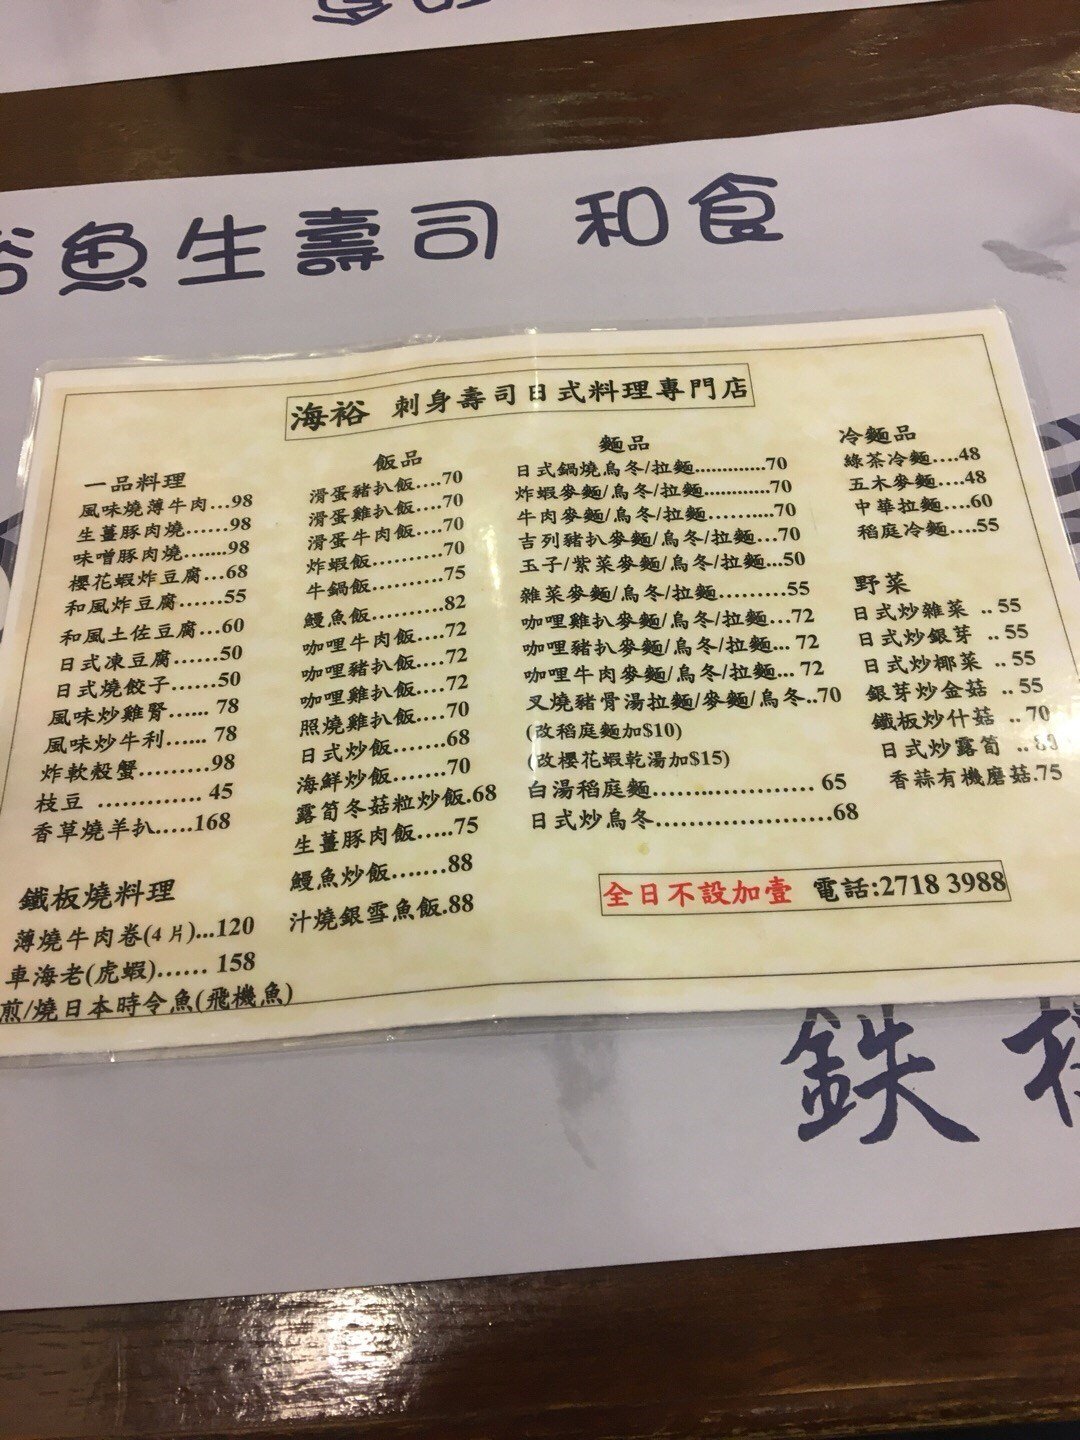 魚生壽司 和食
海裕 刺身壽司日式料理專門店
一品料理
風味燒薄牛肉...98
生薑豚肉燒......98
味噌豚肉燒.......98
櫻花蝦炸豆腐...68
和風炸豆腐......55
和風土佐豆腐...60
日式凍豆腐......50
日式燒餃子......50
風味炒雞腎...... 78
風味炒牛利...... 78
炸軟殼蟹.........98
枝豆 ............. 45
香草燒羊扒.....168
鐵板燒料理
薄燒牛肉卷(4 片)...120
車海老(虎蝦)...... 158
煎/燒日本時令魚(飛機魚)
飯品
滑蛋豬扒飯....70
滑蛋雞扒飯....70
滑蛋牛肉飯....70
炸蝦飯.........70
牛鍋飯.........75
鰻魚飯.........82
咖哩牛肉飯....72
咖哩豬扒飯....72
咖哩雞扒飯....72
照燒雞扒飯....70
日式炒飯.......68
海鮮炒飯.......70
露筍冬菇粒炒飯.68
生薑豚肉飯.....75
鰻魚炒飯.......88
汁燒銀雪魚飯.88
麵品
日式鍋燒烏冬/拉麵.............70
炸蝦麥麵/烏冬/拉麵............70
牛肉麥麵/烏冬/拉麵............70
吉列豬扒麥麵/烏冬/拉麵...70
玉子/紫菜麥麵/烏冬/拉麵...50
雜菜麥麵/烏冬/拉麵.........55
咖哩雞扒麥麵/烏冬/拉麵...72
咖哩豬扒麥麵/烏冬/拉麵... 72
咖哩牛肉麥麵/烏冬/拉麵... 72
叉燒豬骨湯拉麵/麥麵/烏冬..70
(改稻庭麵加$10)
(改櫻花蝦乾湯加$15)
白湯稻庭麵..................... 65
日式炒烏冬.....................68
冷麵品
綠茶冷麵....48
五木麥麵....48
中華拉麵....60
稻庭冷麵....55
野菜
日式炒雜菜 .. 55
日式炒銀芽 .. 55
日式炒椰菜 .. 55
銀芽炒金菇 .. 55
鐵板炒什菇 .. 70
日式炒露筍 ..
香蒜有機磨菇.75
全日不設加壹 電話:2718 3988
鉄